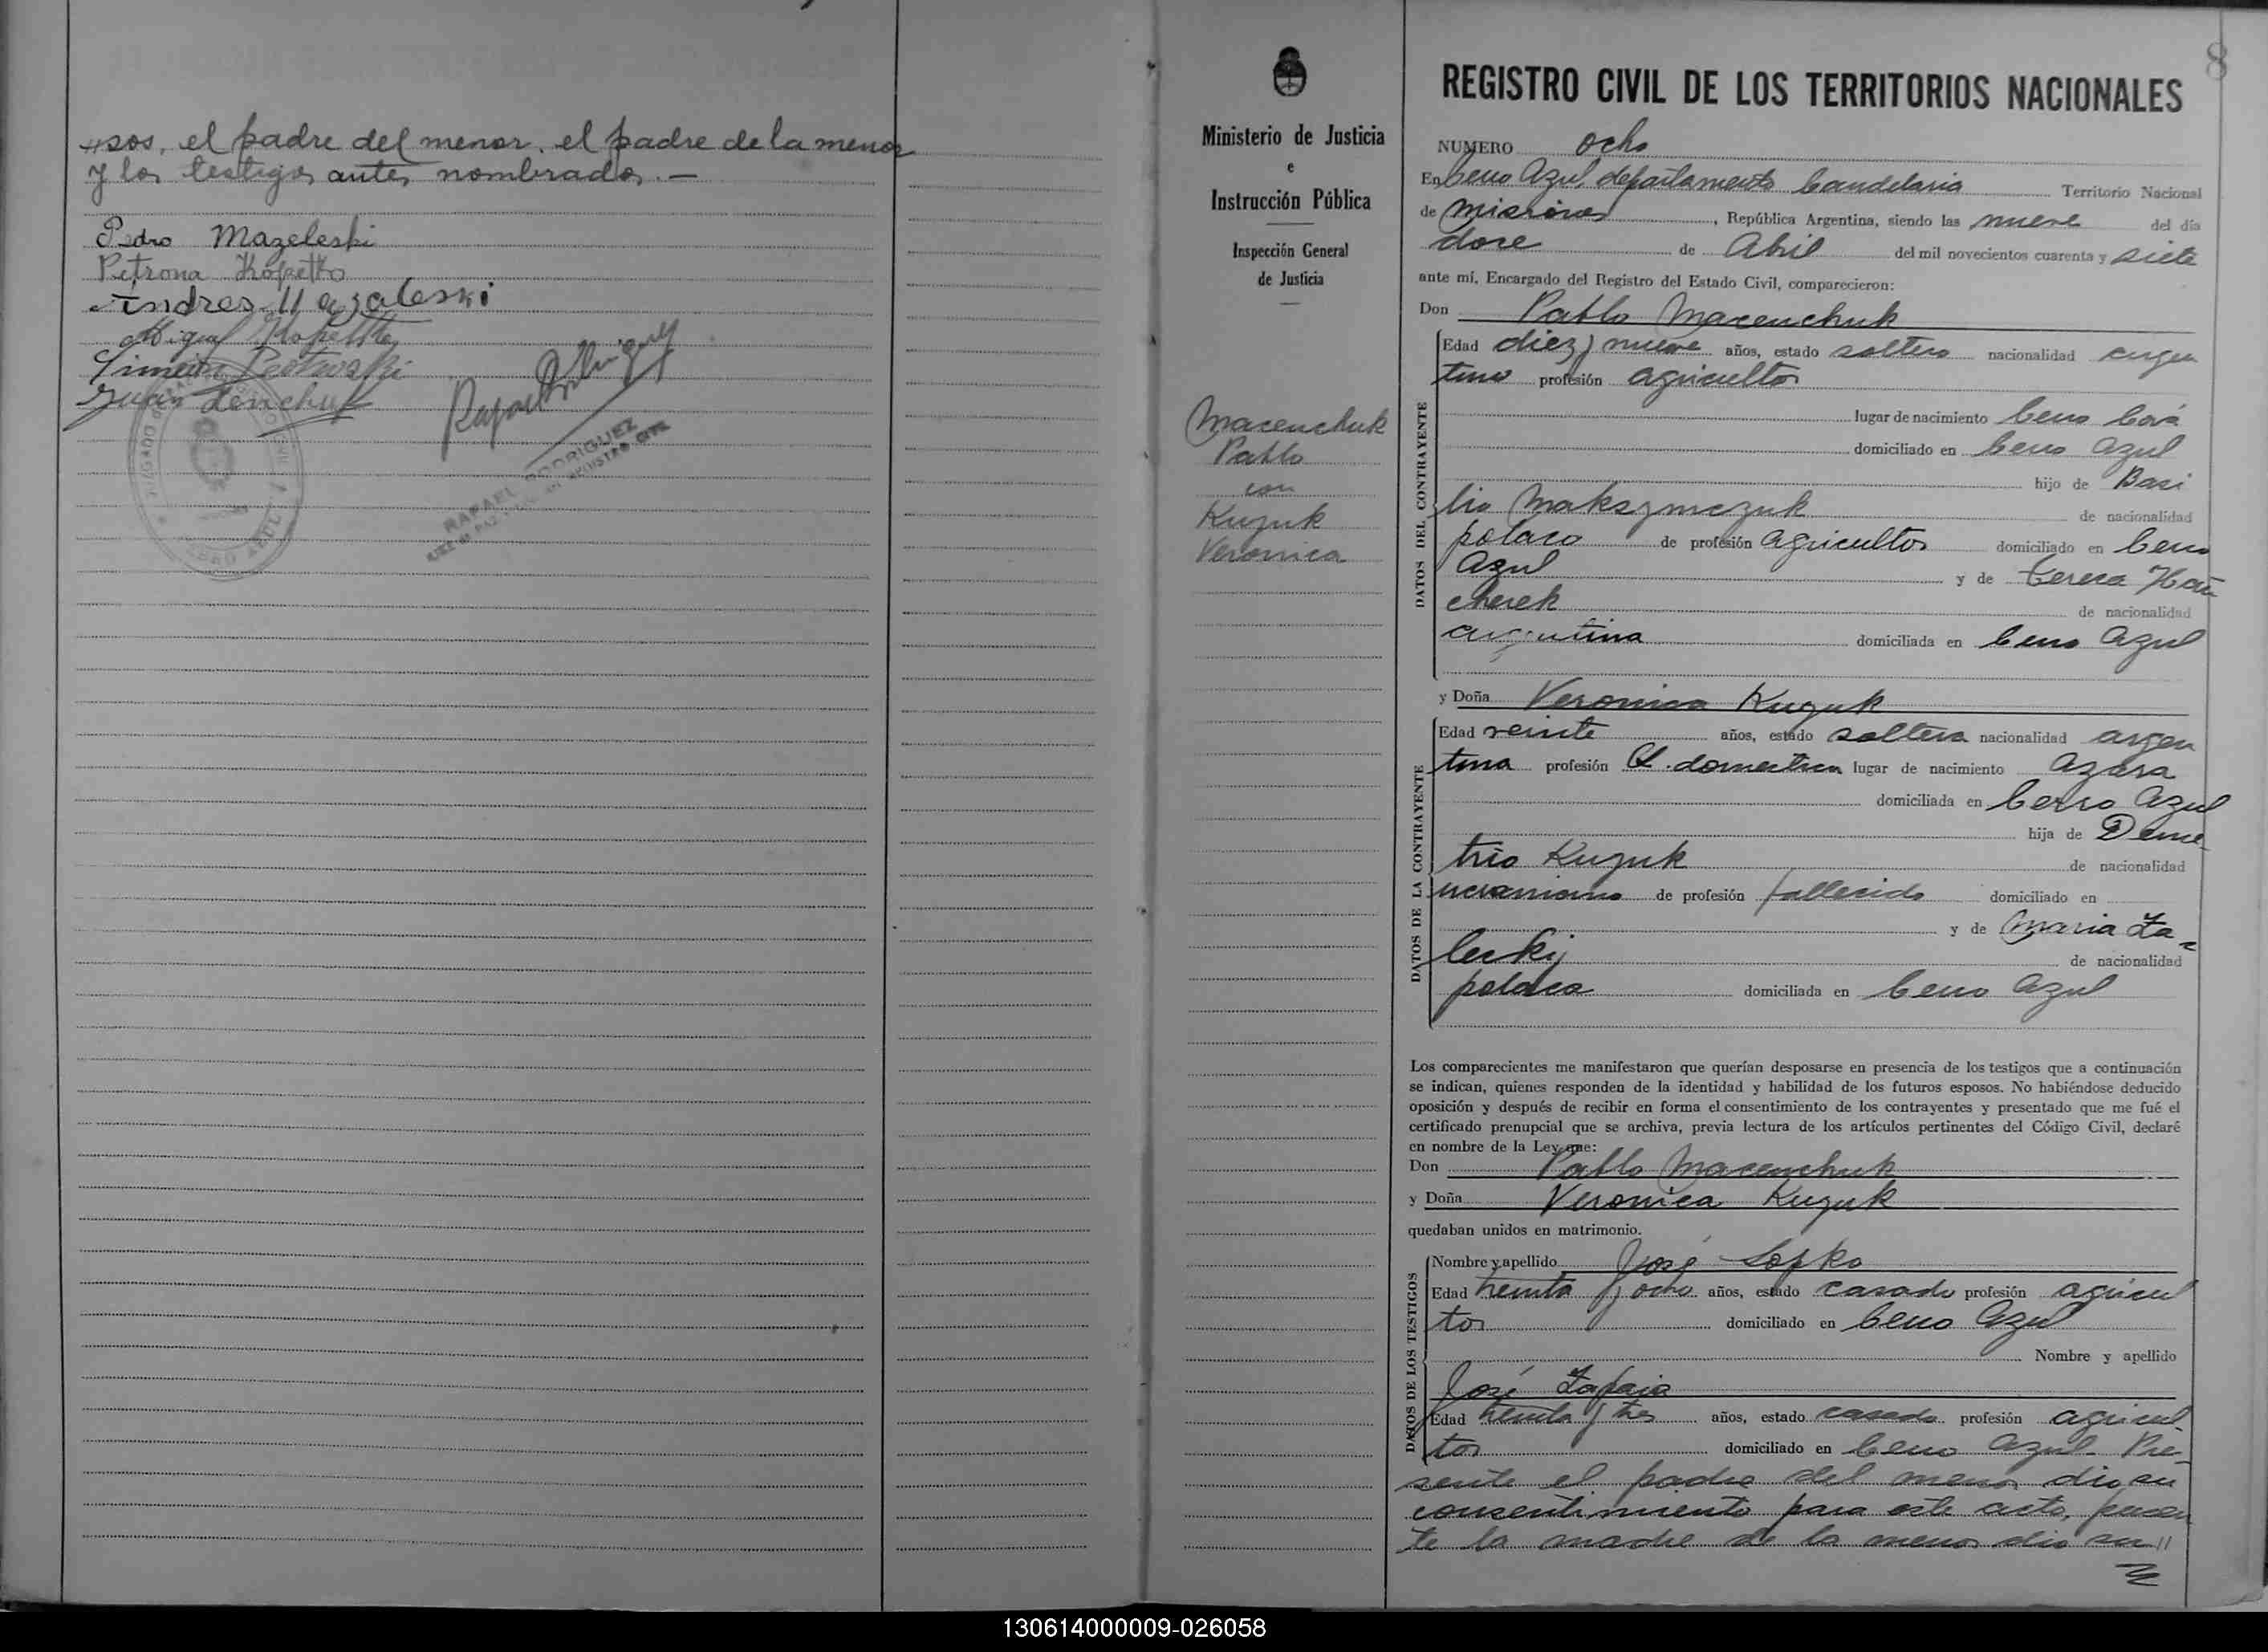 "sos, el padre del menor, el padre de la menor
y los testigos antes nombrados.—
Pedro Mazeleski
Petrona Kopetko
Andres Mazaleski
Miguel Kopetko
Juan Zenchuk
Rafael Rodriguez
RAFAEL RODRIGUEZ
8
Ministerio de Justicia
e
Instrucción Pública
Inspección General
de Justicia
Macenchuk
Pablo
con
Kuzuk
Veronica
REGISTRO CIVIL DE LOS TERRITORIOS NACIONALES
NUMERO ocho
En Cerro Azul, departamento Candelaria Territorio Nacional
de Misiones, República Argentina, siendo las nueve del día
doce de Abril del mil novecientos cuarenta y siete
ante mí, Encargado del Registro del Estado Civil, comparecieron:
Don Pablo Macenchuk
DATOS DEL CONTRAYENTE
Edad diez y nueve años, estado soltero nacionalidad argen
tino profesión agricultor
lugar de nacimiento Cerro Corá
domiciliado en Cerro Azul
hijo de Basi
lio Maksymczuk de nacionalidad
polaco de profesión agricultor domiciliado en Cerro
Azul y de Teresa
cherek de nacionalidad
argentina domiciliada en Cerro Azul
y Doña Veronica Kuzuk
DATOS DE LA CONTRAYENTE
Edad veinte años, estado soltera nacionalidad argen
tina profesión Q. domestica lugar de nacimiento Azara
domiciliada en Cerro Azul
hija de Deme-
trio Kuzuk de nacionalidad
ucraniano de profesión fallecido domiciliado en
y de Maria Za-
lecki de nacionalidad
polaca domiciliada en Cerro Azul
Los comparecientes me manifestaron que querían desposarse en presencia de los testigos que a continuación
se indican, quienes responden de la identidad y habilidad de los futuros esposos. No habiéndose deducido
oposición y después de recibir en forma el consentimiento de los contrayentes y presentado que me fué el
certificado prenupcial que se archiva, previa lectura de los artículos pertinentes del Código Civil, declaré
en nombre de la Ley que:
Don Pablo Macenchuk
y Doña Veronica Kuzuk
quedaban unidos en matrimonio.
DATOS DE LOS TESTIGOS
Nombre y apellido José Sopko
Edad treinta y ocho años, estado casado profesión agricul
tor domiciliado en Cerro Azul
Nombre y apellido
José Zapaia
Edad treinta y tres años, estado casado profesión agricul
tor domiciliado en Cerro Azul. Pre-
sente el padre del menor dio su
consentimiento para este acto, presen
te la madre de la menor dio su //
130614000009-026058